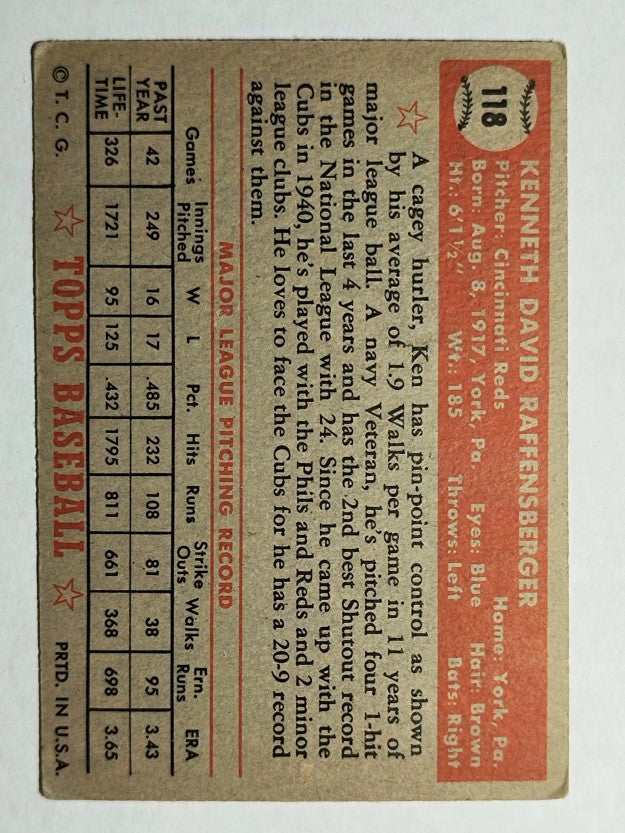 118
KENNETH DAVID RAFFENSBERGER
Pitcher: Cincinnati Reds Home: York, Pa.
Born: Aug. 8, 1917, York, Pa. Eyes: Blue Hair: Brown
Ht.: 6'1½" Wt.: 185 Throws: Left Bats: Right
A cagey hurler, Ken has pin-point control as shown
by his average of 1.9 Walks per game in 11 years of
major league ball. A navy Veteran, he's pitched four 1-hit
games in the last 4 years and has the 2nd best Shutout record
in the National League with 24. Since he came up with the
Cubs in 1940, he's played with the Phils and Reds and 2 minor
league clubs. He loves to face the Cubs for he has a 20-9 record
against them.
MAJOR LEAGUE PITCHING RECORD
Games Innings Pitched W L Pct. Hits Runs Strike Outs Walks Ern. Runs ERA
PAST YEAR 42 249 16 17 .485 232 108 81 38 95 3.43
LIFE-TIME 326 1721 95 125 .432 1795 811 661 368 698 3.65
© T. C. G. TOPPS BASEBALL PRTD. IN U.S.A.